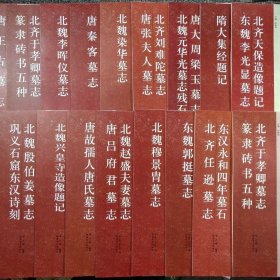 北齐天保造像题记
东魏李光显墓志
隋大集经题记
唐大周梁玉墓志
北魏元华光墓志残石
北齐刘难陀墓志
唐张夫人墓志
北魏染华墓志
唐秦客墓志
北魏李晖仪墓志
北齐于孝卿墓志
篆隶砖书五种
北齐于孝卿墓志
篆隶砖书五种
东汉永和四年墓石
北齐任逊墓志
东魏郭挺墓志
北魏穆景胄墓志
北魏赵盛夫妻墓志
唐吕府君墓志
唐故孺人唐氏墓志
北魏兴皇寺造像题记
北魏殷伯姜墓志
巩义石窟东汉诗刻